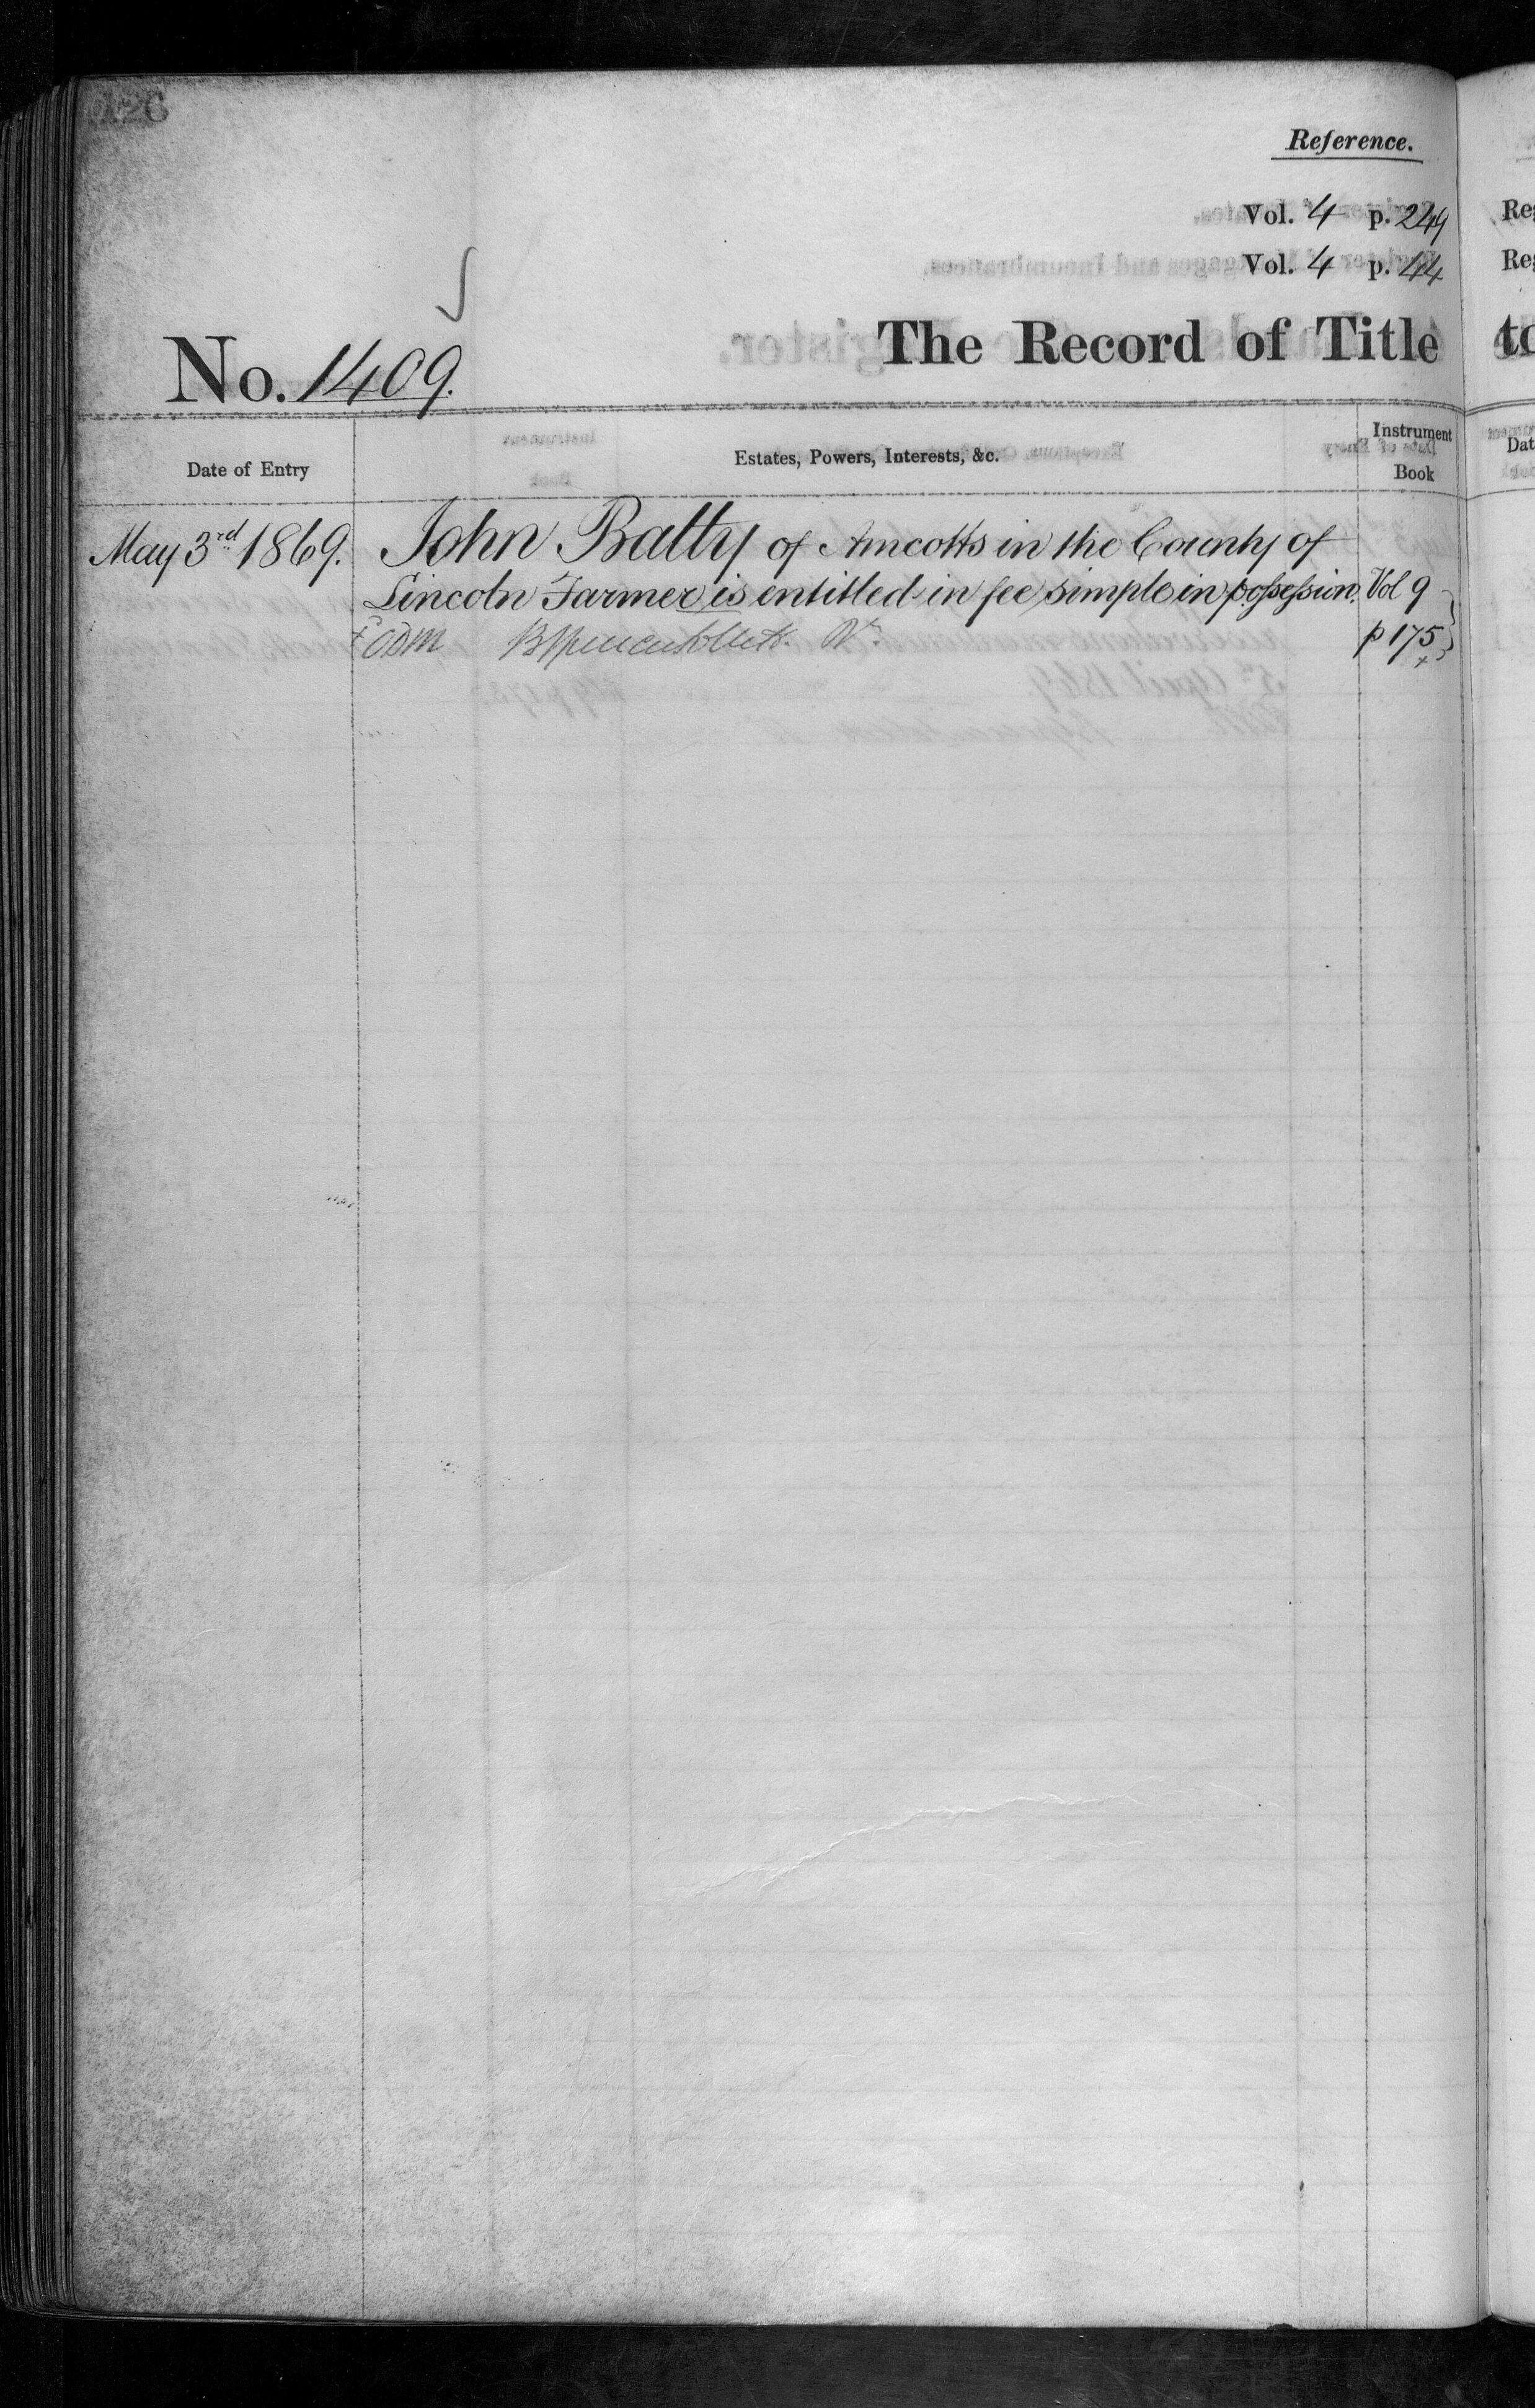 126
Reference.
Vol. 4 p. 249
Vol. 4 p. 44
No. 1409.
The Record of Title
Date of Entry
Estates, Powers, Interests, &c.
Instrument
Book
May 3rd 1869.
John Batty of Amcotts in the County of
Lincoln Farmer is entitled in fee simple in possession.
Vol 9
p 175
ODM
Re
Re
to
Dat